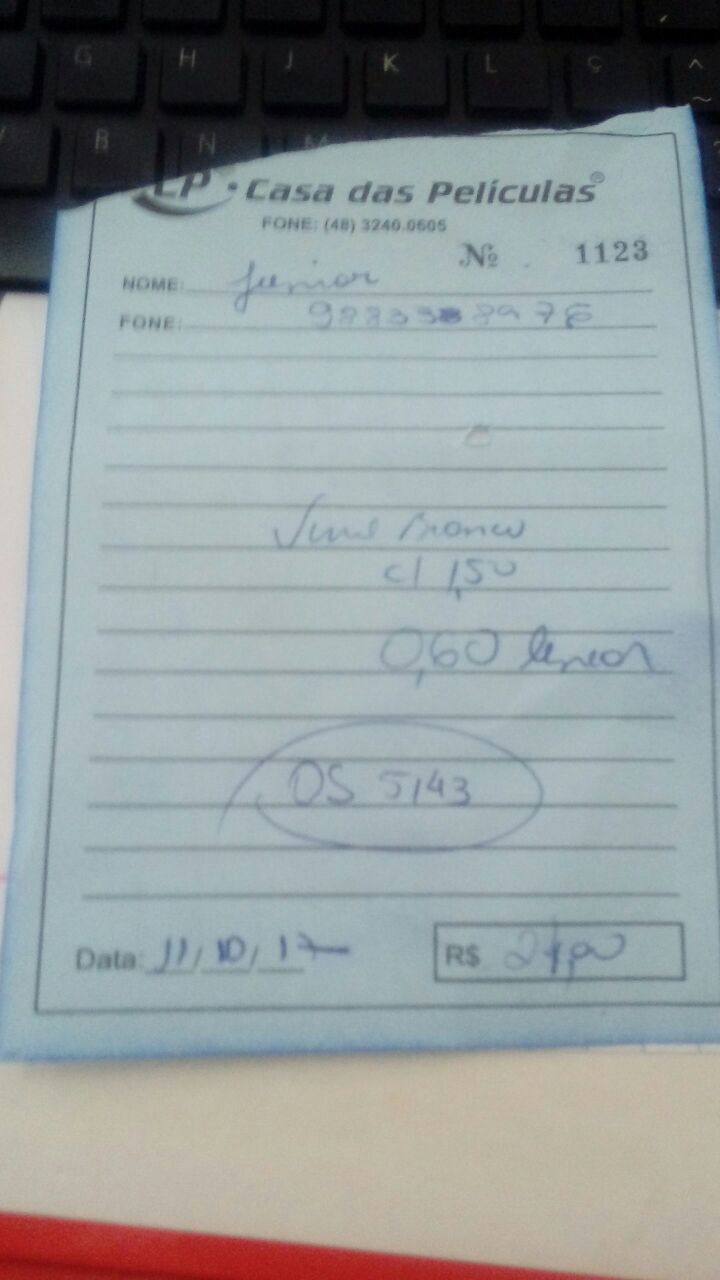 G H J K L Ç ^
V B N M ~
LP • Casa das Películas®
FONE: (48) 3240.0605
Nº 1123
NOME: Junior
FONE:
Vinil Branco
c/ 1,50
0,60 linear
OS 5143
Data: 11/10/17
R$ 24,00